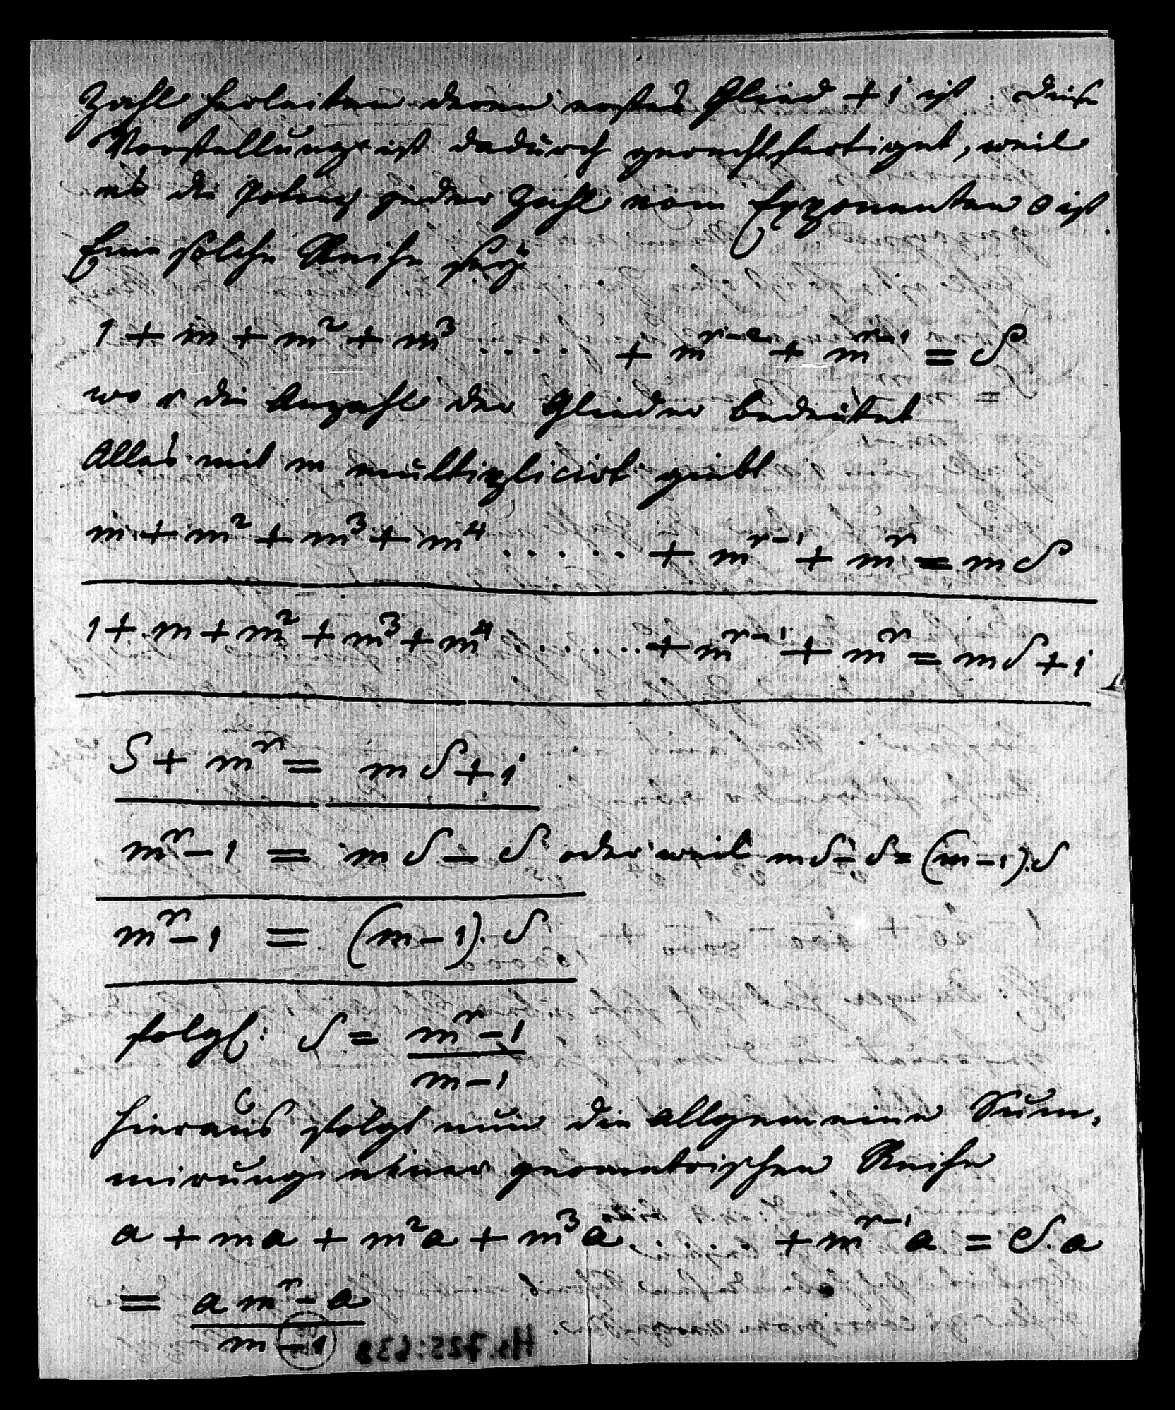 Zahl herleiten deren erstes Glied + 1 ist. Diese
Vorstellung ist dadurch gerechtfertiget, weil
es die Potenz jeder Zahl vom Exponenten 0 ist
Eine solche Reihe sey
1 + m + m² + m³ ..... + m^{r-2} + m^{r-1} = S
wo r die Anzahl der Glieder bedeutet
Alles mit m multiplicirt giebt
m + m² + m³ + m⁴ ...... + m^{r-1} + m^r = mS
1 + m + m² + m³ + m⁴ ....... + m^{r-1} + m^r = mS + 1
S + m^r = mS + 1
m^r - 1 = mS - S oder weil mS - S = (m-1).S
m^r - 1 = (m-1).S
folgl: S = \frac{m^r - 1}{m - 1}
Hieraus folgt nun die allgemeine Sum,
mirung einer geometrischen Reihe
a + ma + m²a + m³a .... + m^{r-1}a = S.a
= \frac{am^r - a}{m - 1}
Hs. 725:639